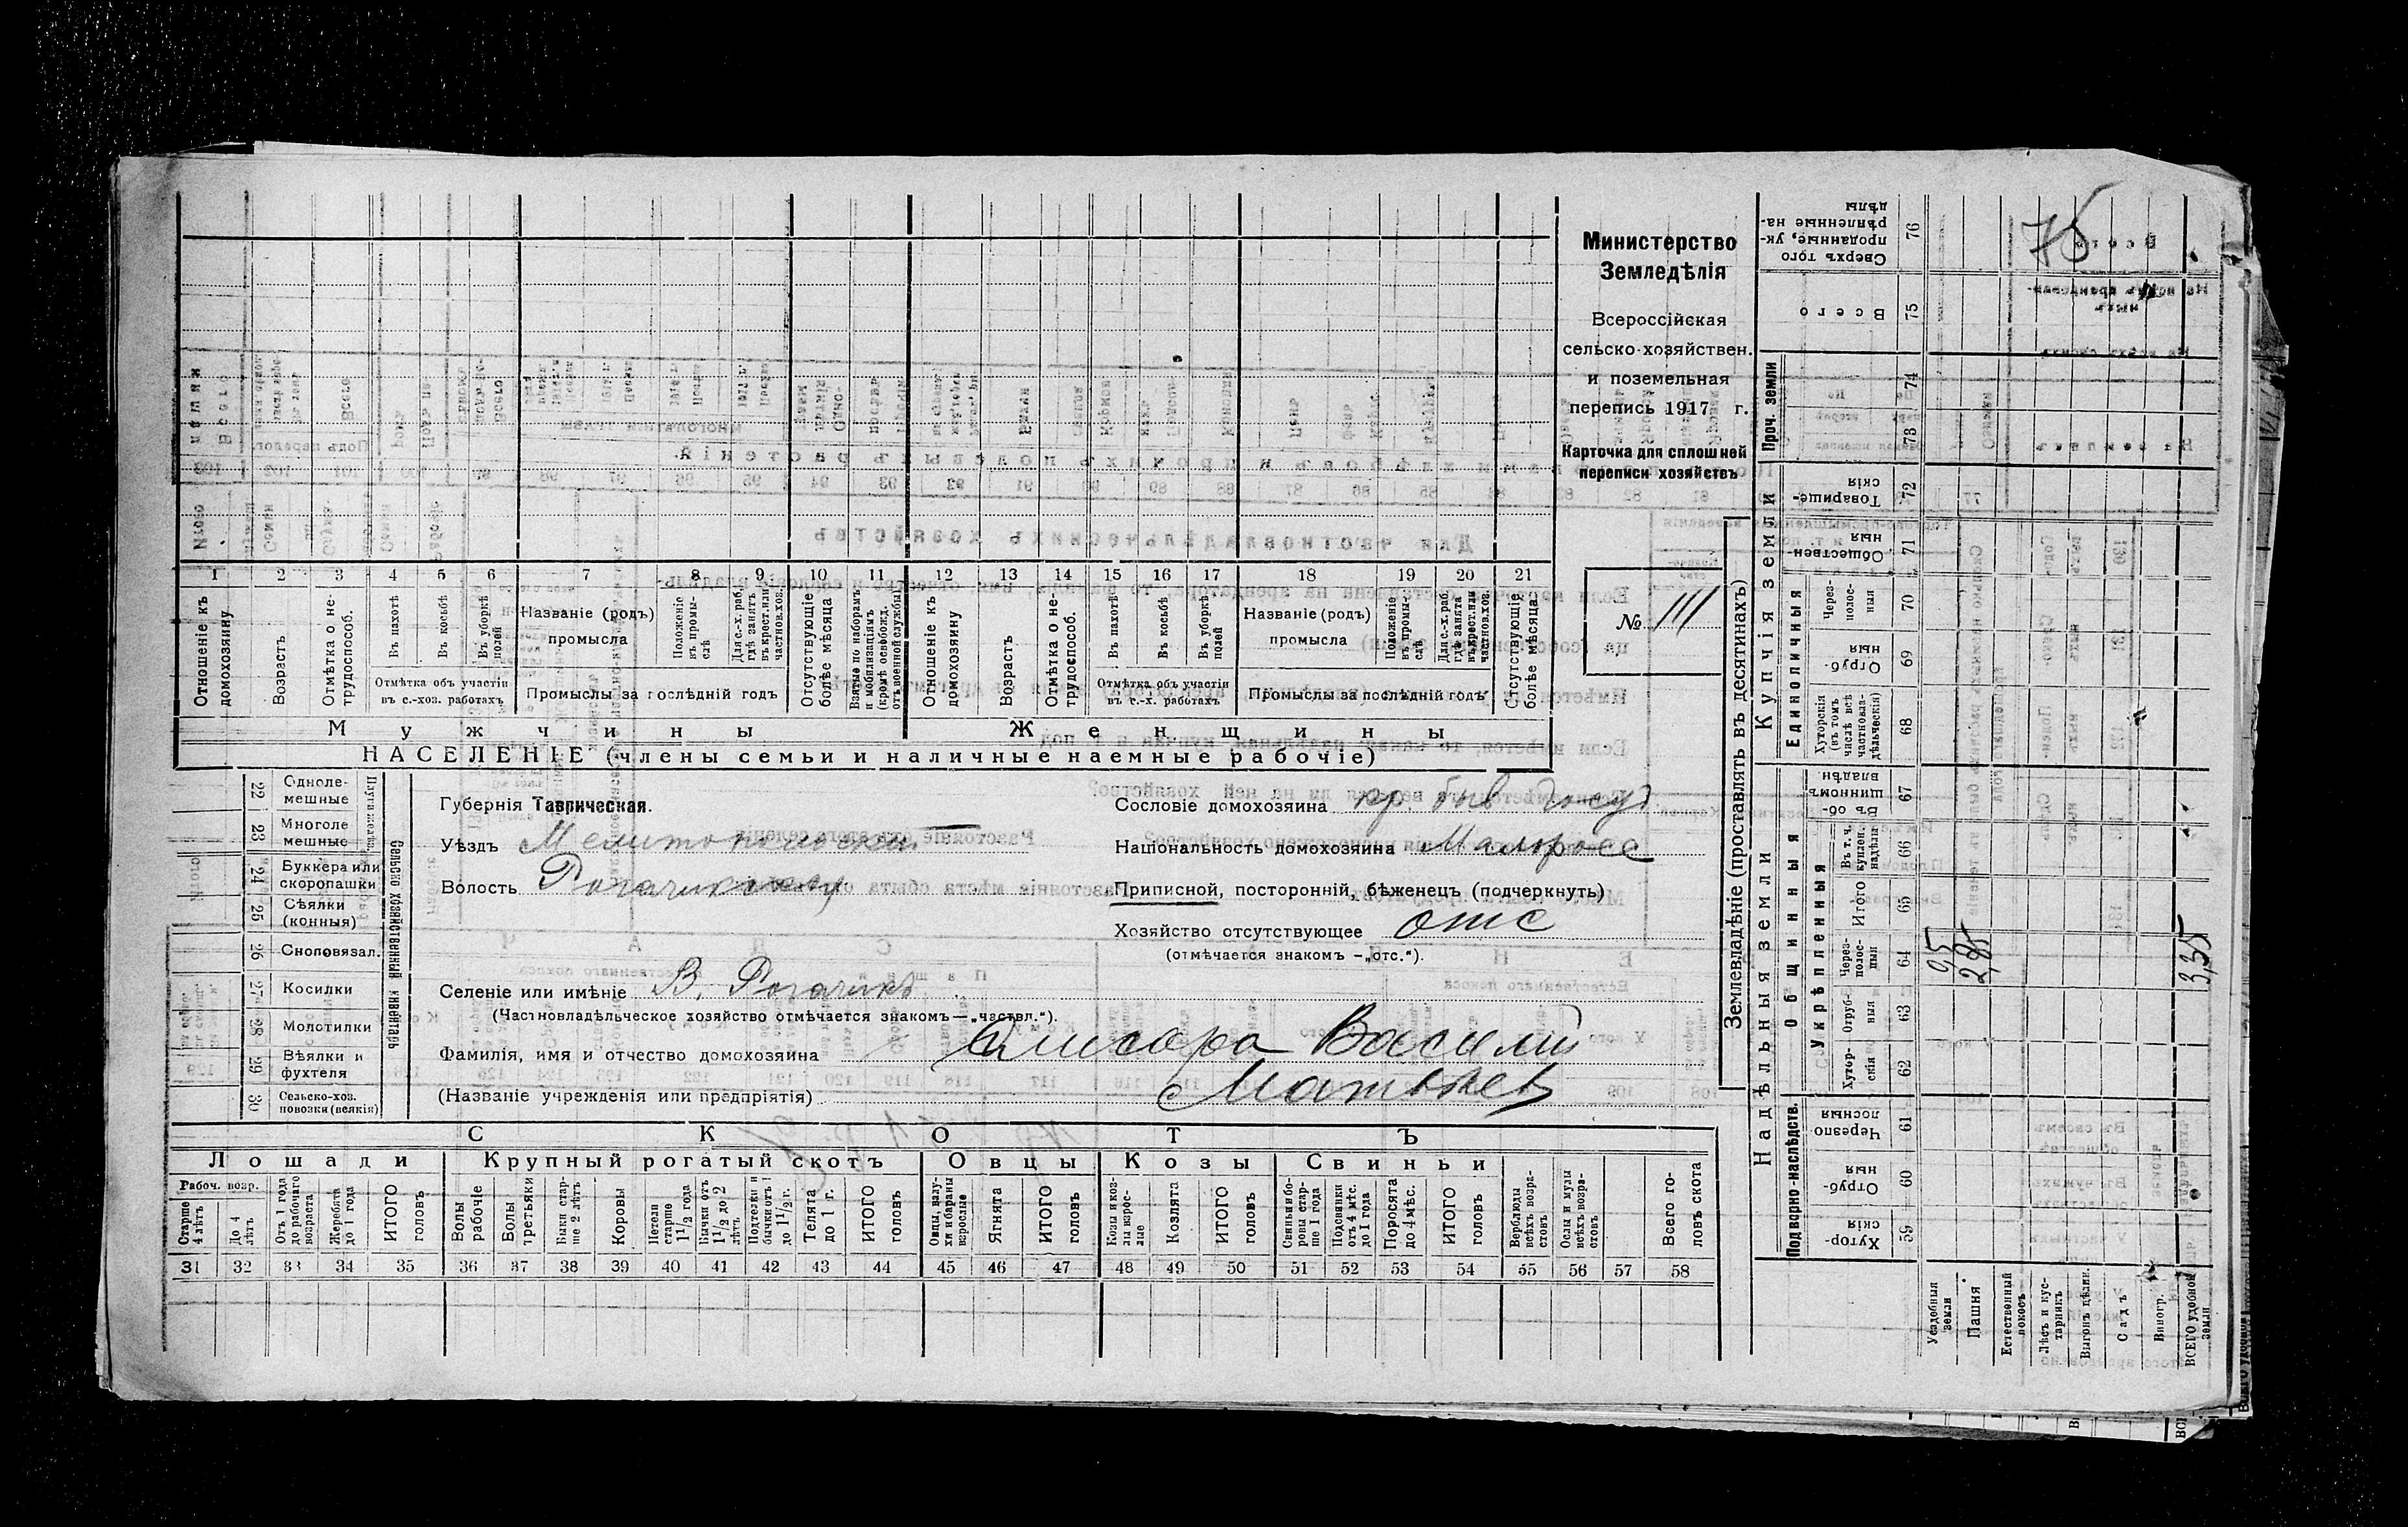 Министерство
Земледѣлія
Всероссійская
сельско-хозяйствен.
и поземельная
перепись 1917 г.
Карточка для сплошной
переписи хозяйствъ
№ 111
75
1 2 3 4 5 6 7 8 9 10 11 12 13 14 15 16 17 18 19 20 21
Отношеніе къ домохозяину
Возрастъ
Отмѣтка о не-трудоспособ.
Въ пахотѣ
Въ косьбѣ
Въ уборкѣ полей
Отмѣтка объ участіи въ с.-хоз. работахъ
Названіе (родъ) промысла
Положеніе къ промы-слѣ
Для с.-х. раб. гдѣ занятъ въ крест. или частнов. хоз.
Промыслы за послѣдній годъ
Отсутствующіе болѣе мѣсяца
Взятые по наборамъ и мобилизаціямъ (кромѣ освобожд. отъ военной службы)
Отношеніе къ домохозяину
Возрастъ
Отмѣтка о не-трудоспособ.
Въ пахотѣ
Въ косьбѣ
Въ уборкѣ полей
Отмѣтка объ участіи въ с.-х. работахъ
Названіе (родъ) промысла
Положеніе къ промы-слѣ
Для с.-х. раб. гдѣ занята въ крест. или частнов. хоз.
Промыслы за послѣдній годъ
Отсутствующіе болѣе мѣсяца
Мужчины
Женщины
НАСЕЛЕНІЕ (члены семьи и наличные наемные рабочіе)
22 Одноле-мешные
23 Многоле мешные
24 Буккера или скоропашки
25 Сѣялки (конныя)
26 Сноповязал.
27 Косилки
28 Молотилки
29 Вѣялки и фухтеля
30 Сельско-хоз. повозки (всякія)
Сельско хозяйственный инвентарь
Губернія Таврическая.
Уѣздъ Мелитопольскій
Волость Рогачикская
Селеніе или имѣніе В. Рогачикъ
(Частновладѣльческое хозяйство отмѣчается знакомъ—„частвл.“).
Фамилія, имя и отчество домохозяина
Василий
(Названіе учрежденія или предпріятія) Матвѣев
Сословіе домохозяина кр. быв госуд
Національность домохозяина Малоросс
Приписной, посторонній, бѣженецъ (подчеркнуть)
Хозяйство отсутствующее отс
(отмѣчается знакомъ —„отс.“).
СКОТЪ
Лошади
Крупный рогатый скотъ
Овцы
Козы
Свиньи
Рабоч. возр.
Старше 4 лѣтъ
До 4 лѣтъ
Отъ 1 года до рабочаго возраста
Жеребята до 1 года
ИТОГО головъ
Волы рабочіе
Волы третьяки
Быки стар-ше 2 лѣтъ
Коровы
Нетели старше 1 1/2 года
Бычки отъ 1 1/2 до 2 лѣтъ
Подтелки и бычки отъ 1 до 1 1/2 г.
Телята до 1 г.
ИТОГО головъ
Овцы, валу-хи и бараны взрослые
Ягнята
ИТОГО головъ
Козы и коз-лы взрос-лые
Козлята
ИТОГО головъ
Свиньи и бо-ровы стар-ше 1 года
Подсвинки отъ 4 мѣс. до 1 года
Поросята до 4 мѣс.
ИТОГО головъ
Верблюды всѣхъ возра-стовъ
Ослы и мулы всѣхъ возра-стовъ
Всего го-ловъ скота
31 32 33 34 35 36 37 38 39 40 41 42 43 44 45 46 47 48 49 50 51 52 53 54 55 56 57 58
Землевладѣніе (проставлять въ десятинахъ)
Надѣльныя земли
Купчія земли
Подворно-наслѣдств.
Общинныя
Укрѣпленныя
Единоличныя
Проч. земли
Хутор-скія 59
Отруб-ныя 60
Черезпо-лосныя 61
Хутор-скія 62
Отруб-ныя 63
Через-полос-ныя 64
Итого 65
Въ т. ч. куплен. надѣла 66
Въ об-щинномъ владѣн 67
Хуторскія (въ томъ числѣ всѣ частновла-дѣльческія) 68
Отруб-ныя 69
Через-полос-ныя 70
Обществен-ныя 71
Товарище-скія 72
73
74
Всего 75
Сверхъ того проданные, ук-рѣпленные на-дѣлы 76
Усадебныя земли 0,5
Пашня 2,85
Естественный покосъ
Лѣсъ и кус-тарникъ
Выгонъ цѣлин.
Садъ
Виногр.
ВСЕГО удобной земли 3,35